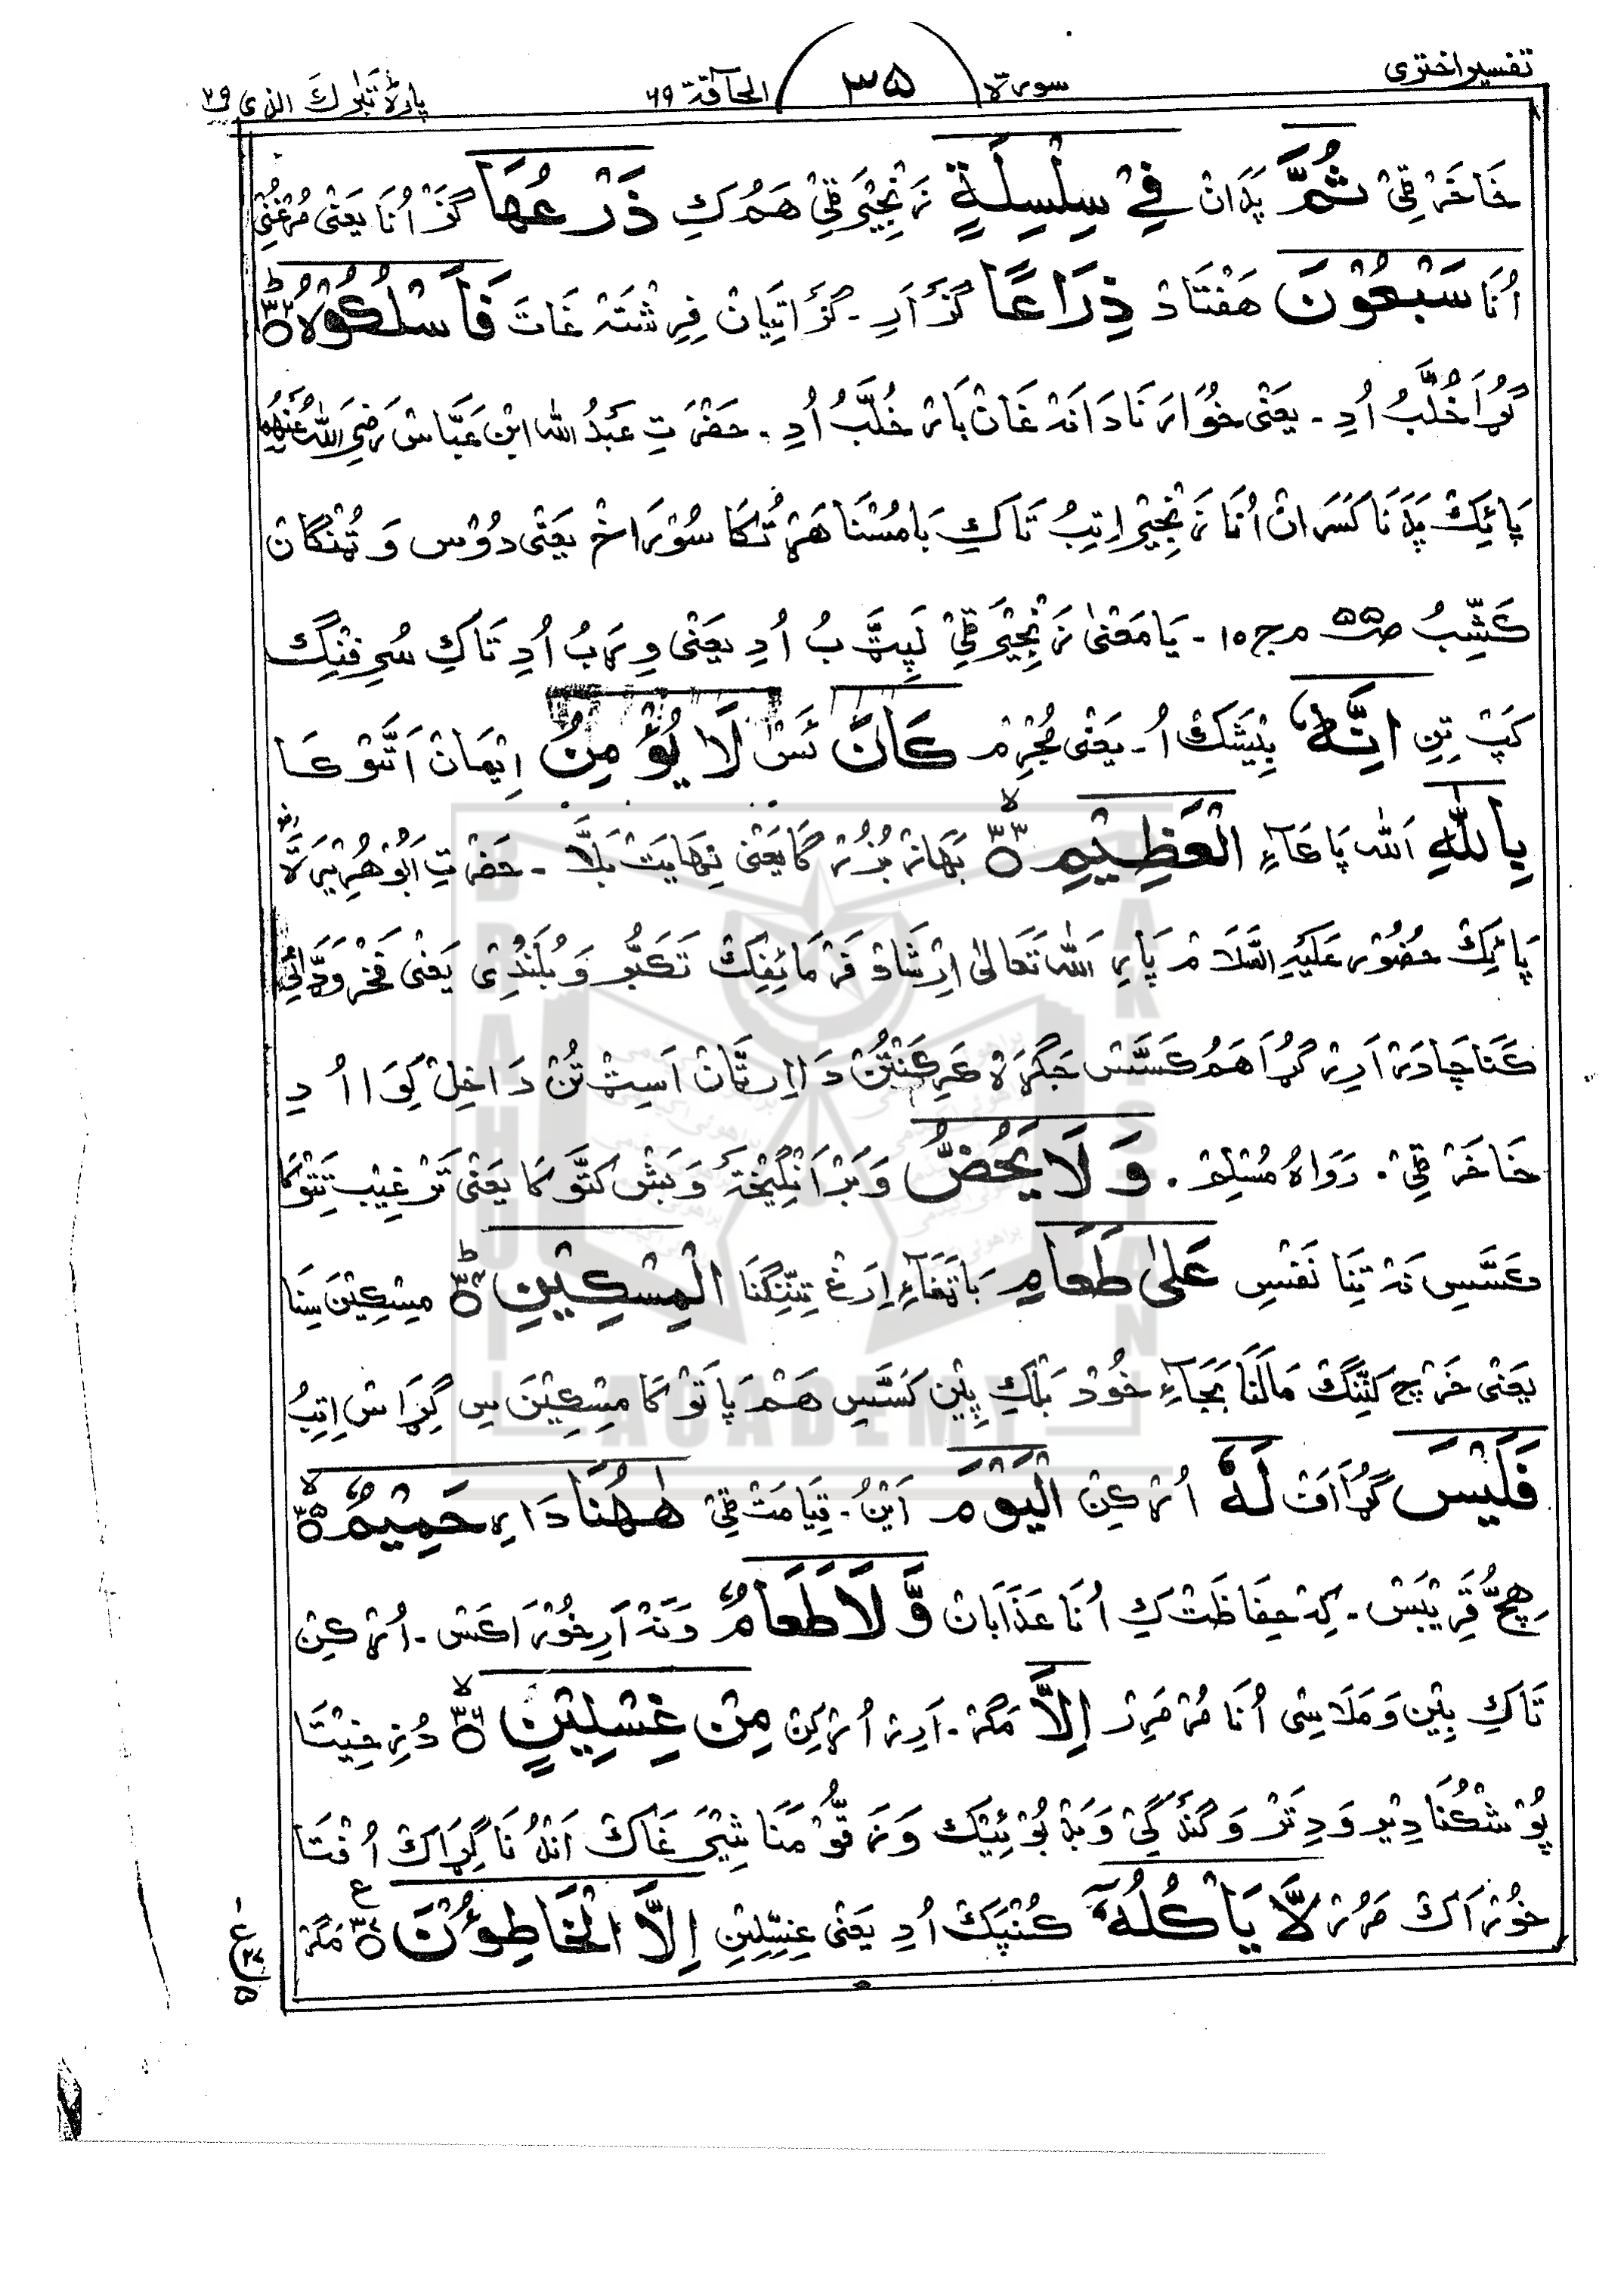 تفسیر اختری
سورۃ ۳۵ الحآقۃ ۶۹
پارۂ تبٰرک الذی ۲۹
خَاخَرْ ٹِیْ ثُمَّ پَدَانْ فِیْ سِلْسِلَۃٍ زَنْجِیْرَ ٹِیْ ھَمُرکِ ذَرْعُھَا گَزْ اُنَا یَعْنٰی مُرْغُنِیْ
اُنَا سَبْعُوْنَ ھَفْتَادْ ذِرَاعًا گَزْ اَرِ۔ گَزْ اَتِیَانْ فِرِشْتَہ غَاتَ فَاسْلُکُوْہُ ۳۲
گُڑَا خُلَّبُ اُدِ۔ یَعْنٰی خُوْارْ نَادَانَہ غَانْ بَارْ خُلَّبُ اُدِ۔ حَضْرَتِ عَبْدُ اللّٰہ ابْنِ عَبَّاسْ رَضِیَ اللّٰہُ عَنْہُ
پَائِکْ پَدَنَا کَسَرَانْ اُنَا زَنْجِیْرْ اِتِبُ تَاکِ بَامُسْنَا ھَرْتُکَا سُوْرَاخْ یَعْنٰی دُوْسْ وَ تُنْکَانْ
کَشِّبُ ص۵۵ ج۱۵۔ یَا مَعْنٰی زَنْجِیْرَ ٹِیْ لَپِیٹَّ بُ اُدِ یَعْنٰی وِڑبُ اُدِ تَاکِ سُرِفِنِگْ
کَپْ تِنِ اِنَّہٗ بِیْشَکْ اُ۔ یَعْنٰی مُجْرِمْ کَانَ ئَسْ لَا یُؤْمِنُ اِیْمَانْ اَتَّوْ کَا
بِاللّٰہِ اَللّٰہ پَاغَآءِ الْعَظِیْمِ ۳۳ بَھَازْ بُزُرْ گَا یَعْنٰی نِھَایَتْ بَلَّا۔ حَضْرَتِ اَبُوْھُرَیْرَۃَ رض
پَائِکْ حُضُوْر عَلَیْہِ السَّلَامْ پَارِ اَللّٰہ تَعَالٰی اِرْشَادْ فَرْمَائِفِکْ تَکَبُّرْ وَ بُلَنْدِیْ یَعْنٰی فَخْر وَ بَڈَّائِیْ
کَنَا چَادَرْ اَرِرْ گُڑَا ھَمُ کَسَّسْ جَگَرَہ کَرِ کَنْتُنْ دَا اِرَتَّانْ اَسِٹْ تُنْ دَاخِلْ کِوَا اُدِ
خَاخَرْ ٹِیْ۔ رَوَاہُ مُسْلِمْ۔ وَلَا یَحُضُّ وَ بَرْ اَنْگِیْخْتَہ وَ بَشْ کَتَّوْ کَا یَعْنٰی تَرْغِیْبْ تِتَّوْکَا
کَسَّسِ نَہ تِنَا نَفْسِ عَلٰی طَعَامِ بَاتَّفَآءِ اِرَغْ تِنِّنْگَنَا الْمِسْکِیْنِ ۳۴ مِسْکِیْنَ سِنَا
یَعْنٰی خَرْچ کَنِّنْگْ مَالَنَا بَجَآءِ خُوْد بَلْکِ پِیْن کَسَّسِ ھَمْ پَاتَوْ کَا مِسْکِیْنَ سِ گِڑَاسْ اِتِبُ
فَلَیْسَ گُڑَا اَفْ لَہُ اُرْکِنْ الْیَوْمَ اَیْنُ۔ قِیَامَتْ ٹِیْ ھٰھُنَا دَارِ حَمِیْمٌ ۳۵
ھِچُّ قَرِیْبَسْ۔ کِہ حِفَاظَتْ کِ اُنَا عَذَابَانْ وَّلَا طَعَامٌ وَنَہ اَرِ خُوْرَاکَسْ۔ اُرْکِنْ
تَاکِ بِیْن وَ مَلَاسِیْ اُنَا مُرْ مَرِرْ اِلَّا مَگَرْ۔ اَرِرْ اُرْکِنْ مِنْ غِسْلِیْنٍ ۳۶ دُزِخِیْتَا
پُوْشْکُنَا دِیْر وَ دِتَرْ وَ گَنْدَ گِیْ وَ بَدْبُوْئِیْکْ وَ زَقُّوْمَنَا شِیْرَ غَاکْ اَنْدُنَا گِڑَاکْ اُفْتَا
خُوْرَاکْ مَرُرْ لَّا یَاْکُلُہٗٓ کُنْپَکْ اُدِ یَعْنٰی غِسْلِیْنِ اِلَّا الْخَاطِـُٔوْنَ ۳۷ مَگَرْ
ع ۳۷ ۵
BRAHUI ACADEMY PAKISTAN